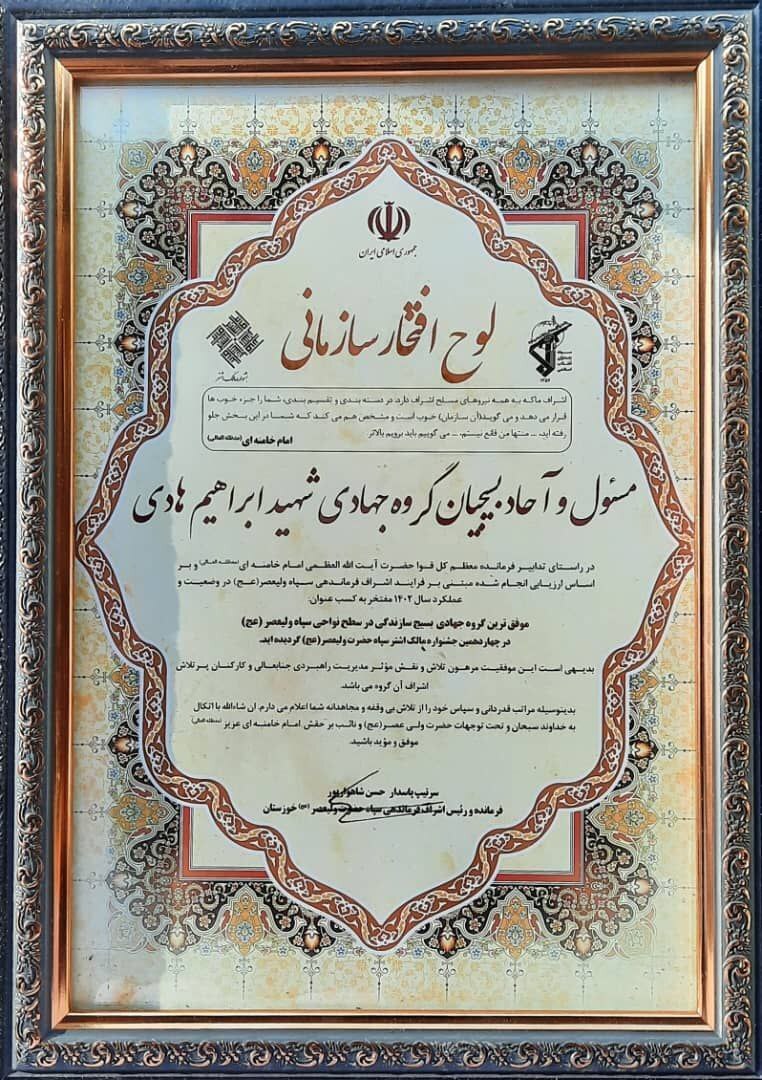 جمهوری اسلامی ایران
لوح افتخار سازمانی
جشنواره مالک اشتر
اشراف ما که به همه نیروهای مسلح اشراف دارد، در دسته بندی و تقسیم بندی، شما را جزء خوب ها
قرار می دهد و می گوید (آن سازمان) خوب است و مشخص هم می کند که شما در این بخش جلو
رفته اید، ... منتها من قانع نیستم، ... می گوییم باید برویم بالاتر
امام خامنه ای (مدظله العالی)
مسئول و آحاد بسیجیان گروه جهادی شهید ابراهیم هادی
در راستای تدابیر فرمانده معظم کل قوا حضرت آیت الله العظمی امام خامنه ای (مدظله العالی) و بر
اساس ارزیابی انجام شده مبتنی بر فرایند اشراف فرماندهی سپاه ولیعصر(عج) در وضعیت و
عملکرد سال ۱۴۰۲ مفتخر به کسب عنوان:
موفق ترین گروه جهادی بسیج سازندگی در سطح نواحی سپاه ولیعصر (عج)
در چهاردهمین جشنواره مالک اشتر سپاه حضرت ولیعصر (عج) گردیده اید.
بدیهی است این موفقیت مرهون تلاش و نقش مؤثر مدیریت راهبردی جنابعالی و کارکنان پر تلاش
اشراف آن گروه می باشد.
بدینوسیله مراتب قدردانی و سپاس خود را از تلاش بی وقفه و مجاهدانه شما اعلام می دارم. ان شاءالله با اتکال
به خداوند سبحان و تحت توجهات حضرت ولی عصر(عج) و نائب بر حقش امام خامنه ای عزیز (مدظله العالی)
موفق و مؤید باشید.
سرتیپ پاسدار حسن شاهوارپور
فرمانده و رئیس اشراف فرماندهی سپاه حضرت ولیعصر (عج) خوزستان